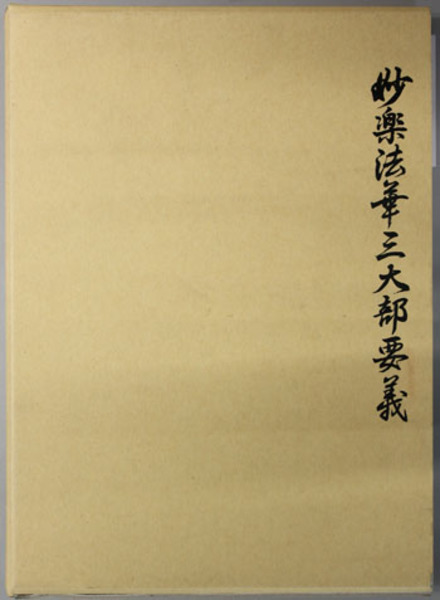 妙楽法華三大部要義